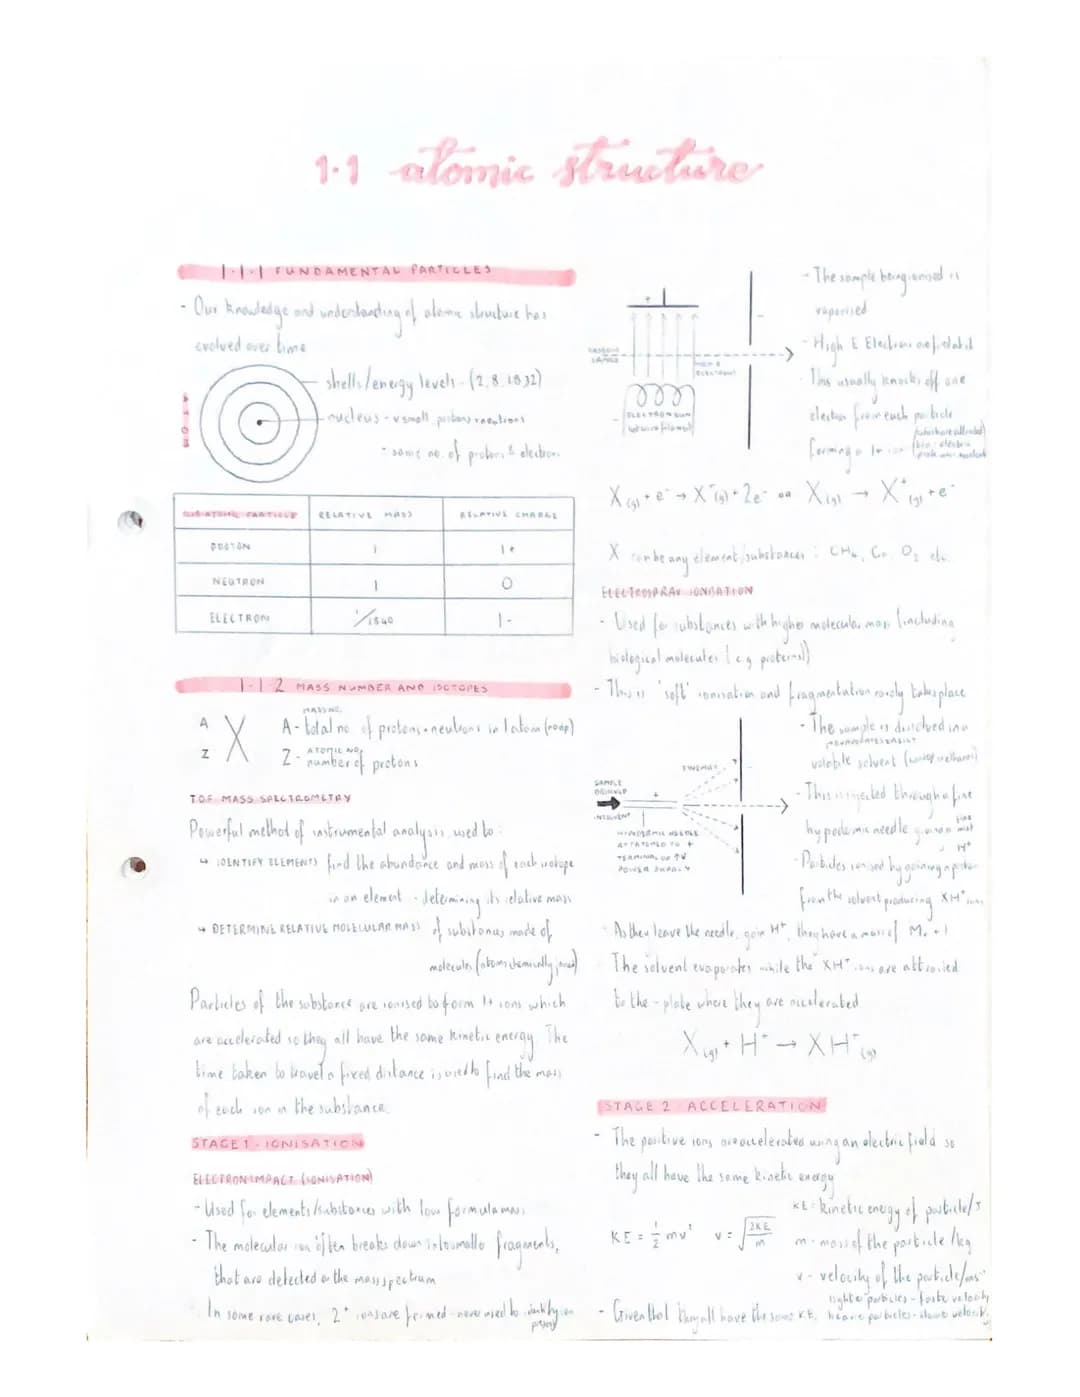 1.1 atomic structure
1.1.1 FUNDAMENTAL PARTICLES
- Our knowledge and understanding of atomic structure has
evolved over time
ATOM
shells/energy levels - (2,8,18,32)
nucleus - v small, protons + neutrons
- same no. of protons & electrons
SUB ATOMIC PARTICLE RELATIVE MASS RELATIVE CHARGE
PROTON 1 1+
NEUTRON 1 0
ELECTRON 1/1840 1-
1.1.2 MASS NUMBER AND ISOTOPES
A
Z X
MASS NO.
A - total no. of protons + neutrons in 1 atom
ATOMIC NO.
Z - number of protons
TOF MASS SPECTROMETRY
Powerful method of instrumental analysis, used to:
↳ IDENTIFY ELEMENTS find the abundance and mass of each isotope
in an element - determining its relative mass
↳ DETERMINE RELATIVE MOLECULAR MASS of substances made of
molecules (atoms chemically joined)
Particles of the substance are ionised to form 1+ ions which
are accelerated so they all have the same kinetic energy. The
time taken to travel a fixed distance is used to find the mass
of each ion in the substance.
STAGE 1 - IONISATION
ELECTRON IMPACT (IONISATION)
- Used for elements/substances with low formula mass
- The molecular ion often breaks down into smaller fragments,
that are detected on the mass spectrum
- In some rare cases, 2+ ions are formed - never used to identify ion
GASEOUS
SAMPLE
HIGH E
ELECTRONS
ELECTRON GUN
hot wire filament
- The sample being ionised is
vaporised
- High E Electrons are
- This usually knocks off one
electron from each particle
forming a 1+ ion
X(g) + e⁻ → X⁺(g) + 2e⁻ OR X(g) → X⁺(g) + e⁻
X can be any element/substances: CH₄, O₂ etc.
ELECTROSPRAY IONISATION
- Used for substances with higher molecular mass (including
biological molecules (e.g proteins))
- This is 'soft' ionisation and fragmentation rarely takes place
SAMPLE
DISSOLVED
IN SOLVENT
FINE MIST
HYPODERMIC NEEDLE
ATTATCHED TO +
TERMINAL OF ↑V
POWER SUPPLY
- The sample is dissolved in a
EVAPORATES EASILY
volatile solvent
- This is injected through a fine
hypodermic needle giving a fine mist
- Particles ionised by gaining a proton H⁺
from the solvent producing XH⁺ ions
- As they leave the needle, gain H⁺, they have a mass of Mr + 1
- The solvent evaporates while the XH⁺ ions are attracted
to the - plate where they are accelerated
X(g) + H⁺ → XH⁺(g)
STAGE 2 ACCELERATION
- The positive ions are accelerated using an electric field so
they all have the same kinetic energy
KE = 1/2 mv² v = √2KE/m
KE: kinetic energy of particle/J
m - mass of the particle/kg
v - velocity of the particle/ms⁻¹
- Given that they all have the same KE,
lighter particles - faster velocity
heavier particles - slower velocity